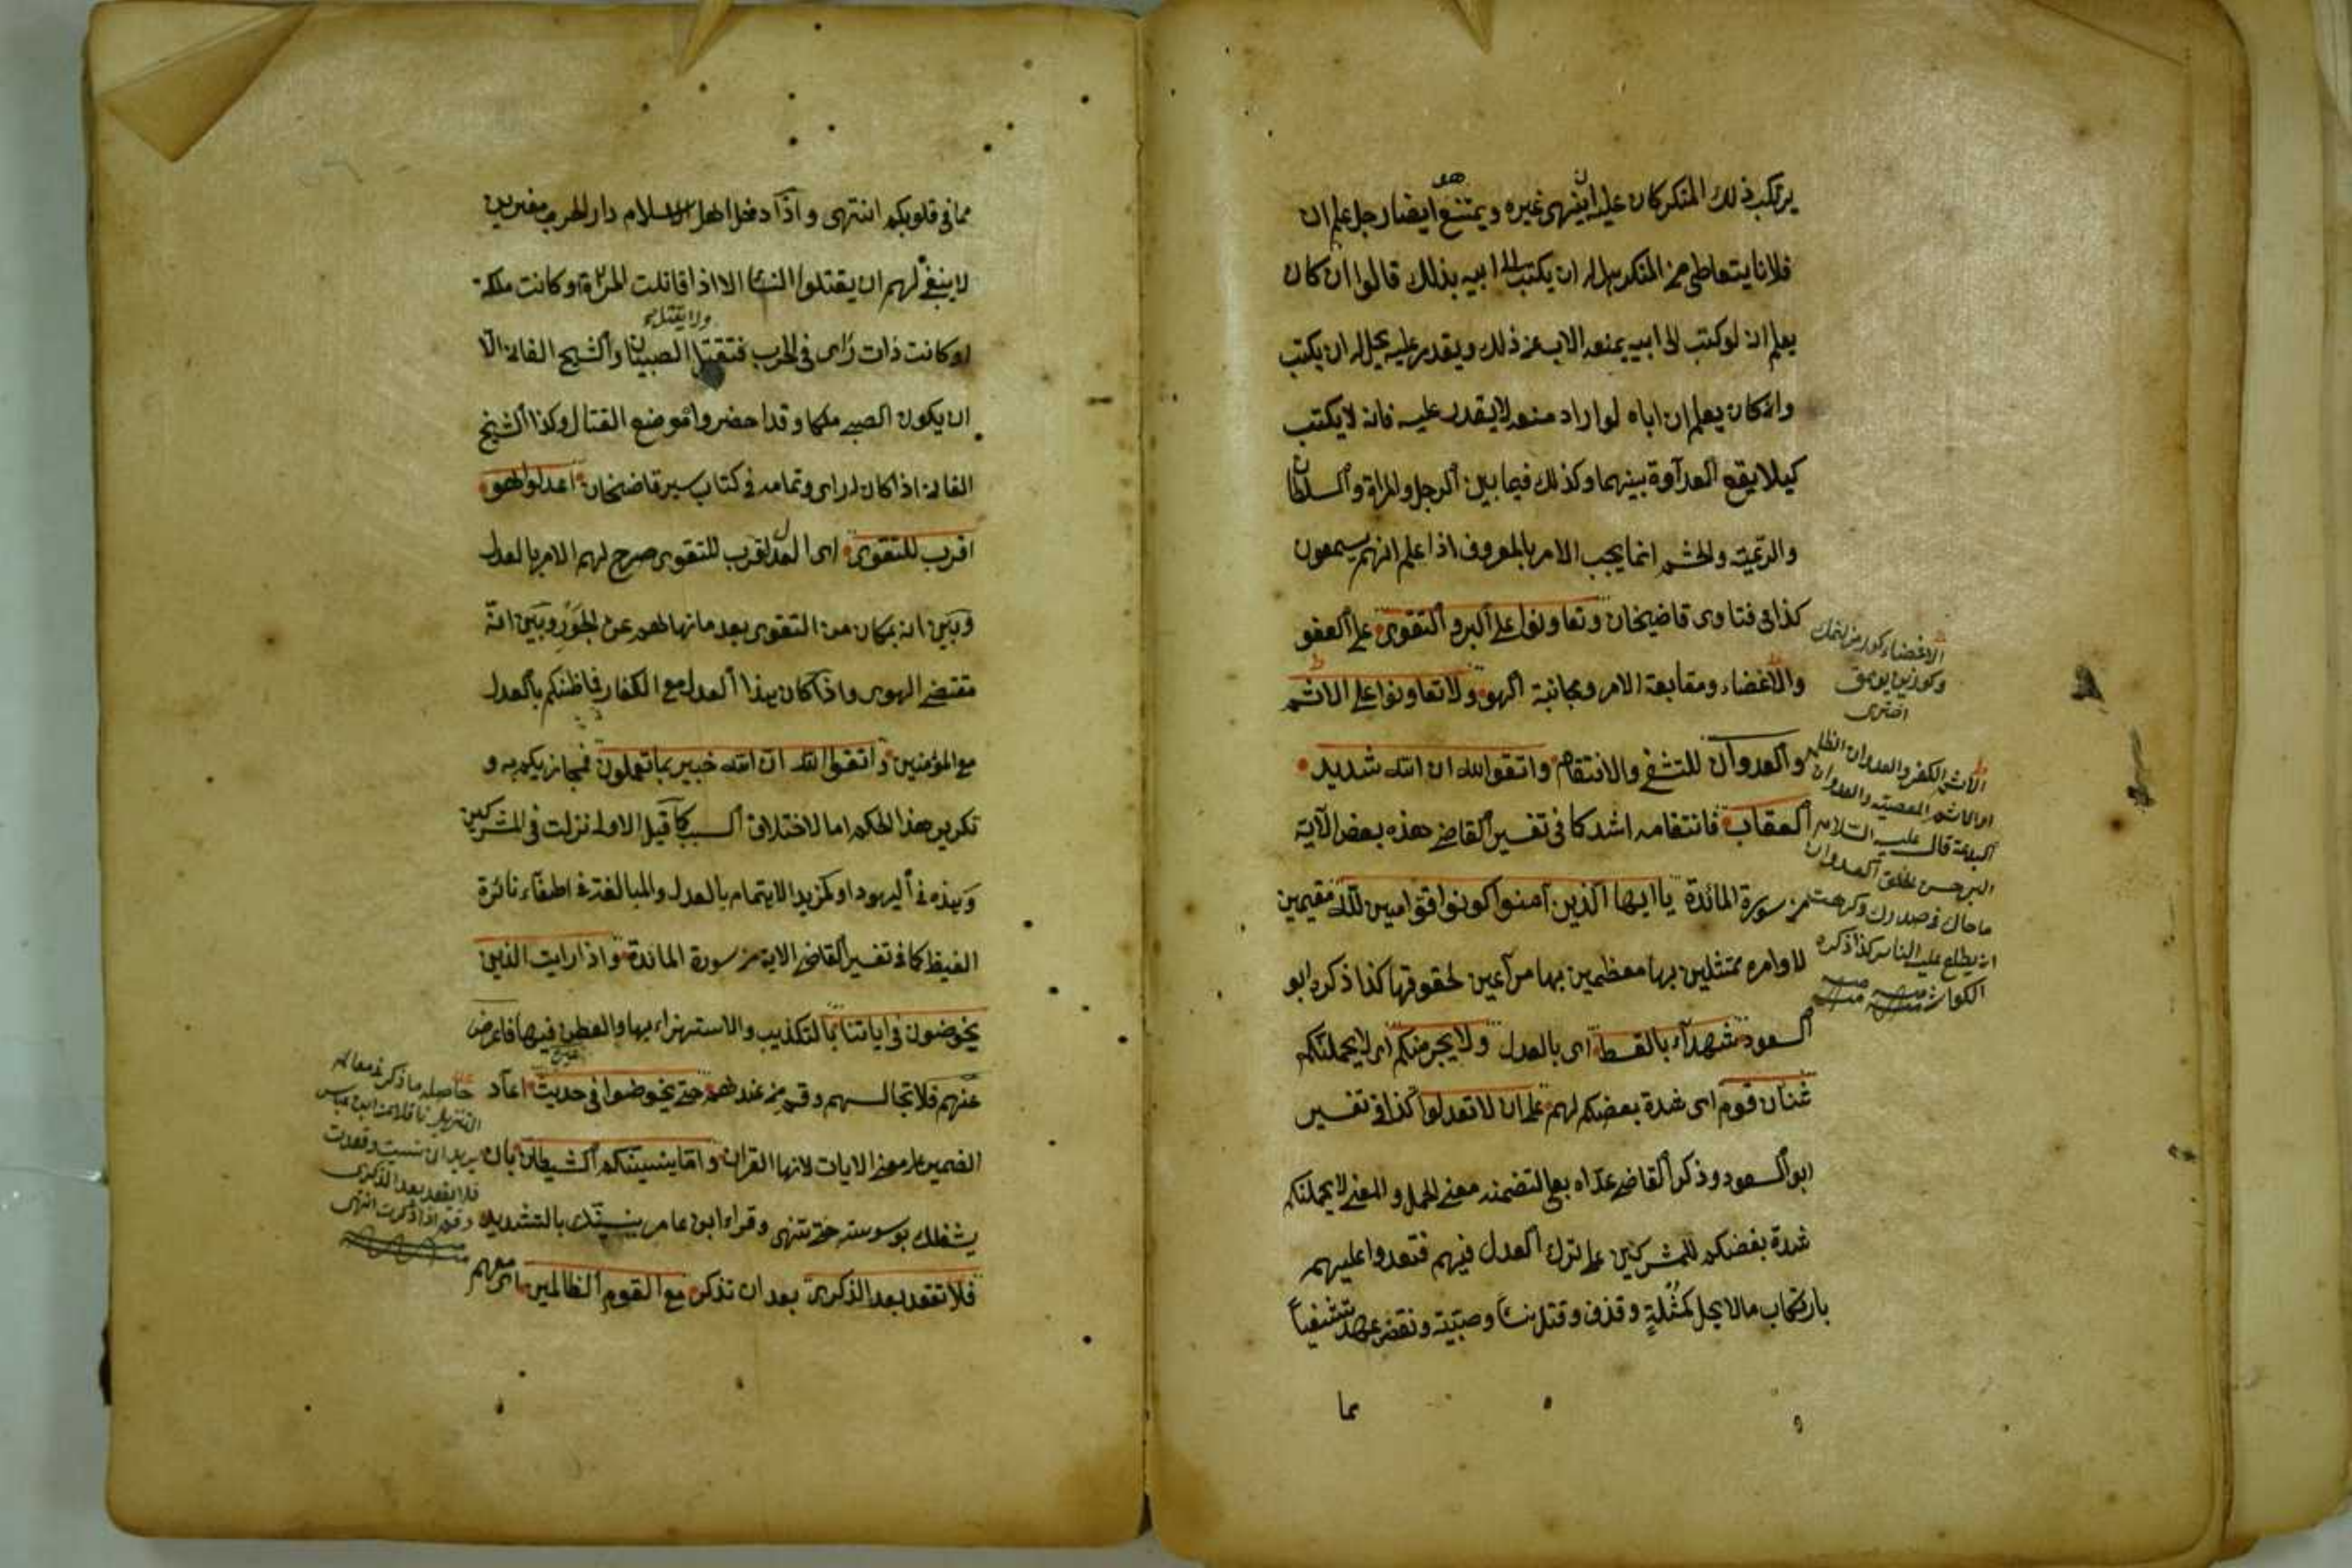 يرتكب ذلك المنكر كان عليه ان ينهى غيره ويمتنع هو ايضا رجل علم ان
فلانا يتعاطى من المنكر هل له ان يكتب الى ابيه بذلك قالوا ان كان
يعلم ان لو كتب الى ابيه يمنعه الاب عن ذلك ويقدر عليه يحل له ان يكتب
وان كان يعلم ان اباه لو اراد منعه لا يقدر عليه فانه لا يكتب
كيلا يقع العداوة بينهما وكذلك فيما بين الرجل والمراة والسلطان
والرعية والحشم انما يجب الامر بالمعروف اذا علم انهم يسمعون
كذا في فتاوى قاضيخان وتعاونوا على البر والتقوى على العفو
والاغضاء ومتابعة الامر ومجانبة الهوى ولا تعاونوا على الاثم
والعدوان للتشفي والانتقام واتقوا الله ان الله شديد
العقاب فانتقامه اشد كما في تفسير القاضي هذه بعض الآية
من سورة المائدة يا ايها الذين آمنوا كونوا قوامين لله مقيمين
لاوامره ممتثلين بها معظمين بها مراعين لحقوقها كذا ذكره ابو
السعود شهداء بالقسط اى بالعدل ولا يجرمنكم اى لا يحملنكم
شنان قوم اى شدة بعضكم لهم على ان لا تعدلوا كذا في تفسير
ابو السعود وذكر القاضي عداه بعلى لتضمنه معنى الحمل والمعنى لا يحملنكم
شدة بغضكم للمشركين على ترك العدل فيهم فتعدوا عليهم
بارتكاب مالا يحل كمثلة وقذف وقتل نساء وصبية ونقض عهد تشفيا
مما
الاثم الكفر والعدوان الظلم
او الاثم المعصية والعدوان
البدعة قال عليه السلام
البر حسن الخلق
ما حاك في صدرك وكرهت
ان يطلع عليه الناس كذا ذكره
الكواشي
مما في قلوبكم انتهى واذا دخل اهل الاسلام دار الحرب مغيرين
لا ينبغي لهم ان يقتلوا النساء الا اذا قاتلت المراة او كانت ملكة
او كانت ذات راى في الحرب فتقتل ولا يقتل الصبيان والشيخ الفاني الا
ان يكون الصبي ملكا وقد احضروا موضع القتال وكذا الشيخ
الفاني اذا كان له راى وتمامه في كتاب سير قاضيخان اعدلوا هو
اقرب للتقوى اى العدل اقرب للتقوى صرح لهم الامر بالعدل
وبين انه بمكان من التقوى بعد ما نهاهم عن الجور وبين انه
مقتضى الهوى واذا كان هذا العدل مع الكفار فما ظنكم بالعدل
مع المؤمنين واتقوا الله ان الله خبير بما تعملون فيجازيكم به و
تكرير هذا الحكم اما لاختلاف السبب كما قيل الاولى نزلت في المشركين
وهذه في اليهود او لمزيد الاهتمام بالعدل والمبالغة في اطفاء نائرة
الغيظ كما في تفسير القاضي الاية من سورة المائدة واذا رايت الذين
يخوضون في اياتنا بالتكذيب والاستهزاء بها والطعن فيها فاعرض
عنهم فلا تجالسهم وقم من عندهم حتى يخوضوا في حديث غيره اعاد
الضمير على معنى الايات لانها القران واما ينسينك الشيطان بان
يشغلك بوسوسته حتى تنهى وقراء ابن عامر ينسينك بالتشديد
فلا تقعد بعد الذكرى بعد ان تذكر مع القوم الظالمين اى معهم
حاصله ما ذكر في معالم
التنزيل ناقلا عن ابن عباس
يريد ان نسيت وقعدت
فلا تقعد بعد الذكرى
وقم اذا ذكرت انتهى